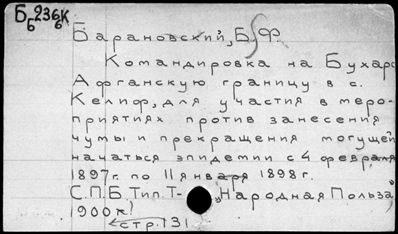 Б 236к
Б 6
Барановский, Б.Ф.
Командировка на Бухаро-
Афганскую границу в с.
Келиф, для участия в меро-
приятиях против занесения
чумы и прекращения могущей
начаться эпидемии с 4 февраля
1897г. по 11 января 1898г.
С.П.Б. Тип. Т- "Народная Польза"
1900г.
стр. 131